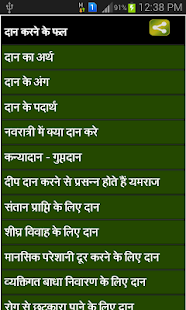 91% 12:38 PM
दान करने के फल
दान का अर्थ
दान के अंग
दान के पदार्थ
नवरात्री में क्या दान करे
कन्यादान - गुप्तदान
दीप दान करने से प्रसन्न होते हैं यमराज
संतान प्राप्ति के लिए दान
शीघ्र विवाह के लिए दान
मानसिक परेशानी दूर करने के लिए दान
व्यक्तिगत बाधा निवारण के लिए दान
रोग से छुटकारा पाने के लिए दान